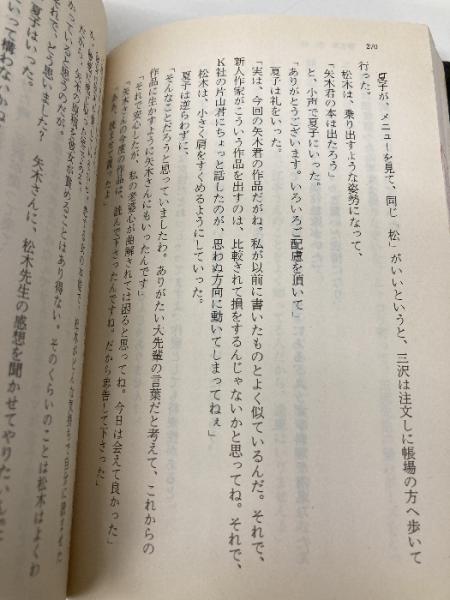 270
夏子が、メニューを見て、同じ「松」がいいというと、三沢は注文しに帳場の方へ歩いて
行った。
松木は、乗り出すような姿勢になって、
「矢木君の本は出たろう」
と、小声で夏子にいった。
「ありがとうございます。いろいろご配慮を頂いて」
夏子は礼をいった。
「実は、今回の矢木君の作品だがね。私が以前に書いたものとよく似ているんだ。それで、
新人作家がこういう作品を出すのは、比較されて損をするんじゃないかと思ってね。それで、
K社の片山君にちょっと話したのが、思わぬ方向に動いてしまってねぇ」
松木は、小さく肩をすくめるようにしていった。
夏子は逆らわずに、
「そんなことだろうと思っていましたわ。ありがたい大先輩の言葉だと考えて、これからの
作品に生かすように矢木さんにもいったんです」
「それで安心したが、私の老婆心が曲解されては困ると思ってね。今日は会えて良かった」
「矢木さんの今度の作品は、読んで下さったんですね。だから忠告して下さった」
読ませて貰ったよ」
それで、どう思いました？　矢木さんに、松木先生の感想を聞かせてやりたいん
夏子はいった。
いって構わないかね